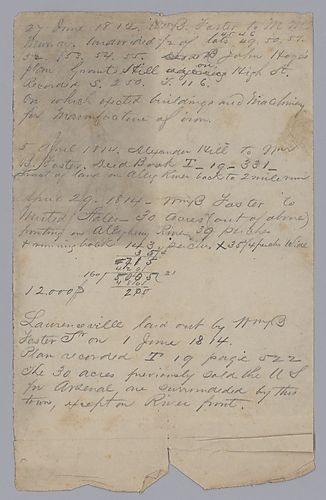 27 June 1814, Wm B. Foster to M M
Murray. undivided 1/2 of lots 49. 50. 51.
45 46
52, 53. 54. 55. John
plan Grant's Hill on High St.
Recorded S. 230. T. 116.
On which erected buildings and Machinery
for manufacture of iron.
5 April 1814, Alexander Hill to Wm
B. Foster. Deed Book I - 19 - 331 -
tract of land on Alleg River back to 2 mile run
April 29. 1814 - Wm B Foster to
United States - 30 acres (out of above)
fronting on Allegheny River 39 perches
& running back 143. perches. & 35 perches Wide
12.000$
205
Lawrenceville laid out by Wm B
Foster on 1 June 1814.
Plan recorded I 19 page 522
The 30 acres previously sold the U S
for Arsenal are surrounded by this
town, except on River front.